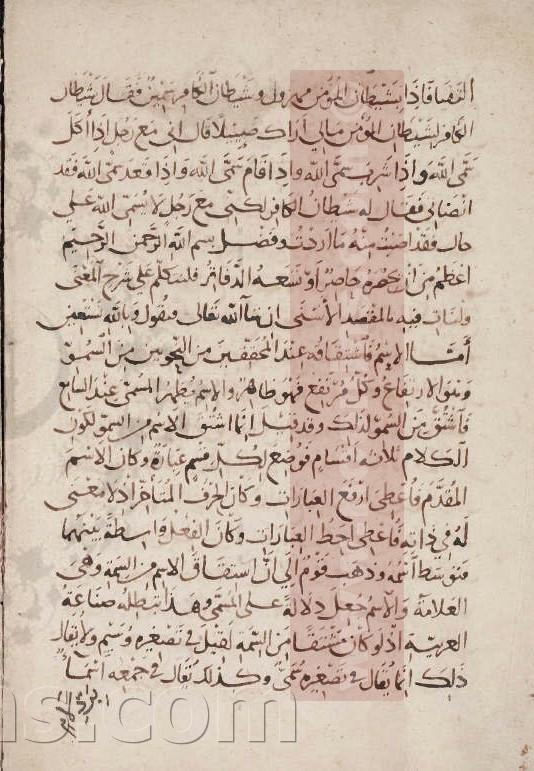 ألتقيا فإذا بشيطان المؤمن مهزول وشيطان الكافر سمين فقال شيطان
الكافر لشيطان المؤمن مالي أراك ضئيلا قال اني مع رجل إذا أكل
سمّى الله وإذا شرب سمّى الله وإذا قام سمّى الله وإذا قعد سمّى الله فقد
انضاني فقال له شيطان الكافر لكني مع رجل لا يسمّى الله على
حال فقد اصبت منه ما اردت وفضل بسم الله الرحمن الرحيم
اعظم من ان يحصره حاصر أو تسعه الدفاتر فلنتكلم على شرح المعنى
ولنات فيه بالمقصد الأسنى ان شآ الله تعالى فنقول وبالله نستعين
أمّا الاسم فآشتقاقه عند المحققين من النحويين من السموّ
وهو الارتفاع وكلّ مرتفع فهو ظاهر والاسم يظهر المسمّى عند السامع
فآشتقّ من السموّ لذلك وقد قيل انما اشتق الاسم من السموّ لكون
الكلام ثلاثة اقسام فوضع لكل قسم عبارة وكان الاسم
المقدم فأعطى ارفع العبارات وكان الحرف المتأخر إذ لا معنى
له في ذاته فأعطى احط العبارات وكان الفعل واسطة بينهما
فتوسّط آسمه وذهب قوم إلي أنّ اشتقاق الاسم من السمة وهي
العلامة والاسم جعل دلالة على المسمّى وهذا تبطله صناعة
العربية اذ لو كان مشتقا من السّمة لقيل في تصغيره وسيم ولا يقال
ذلك إنّما يقال في تصغيره سُمَىّ وكذلك يقال في جمعه اسماً
ns.com